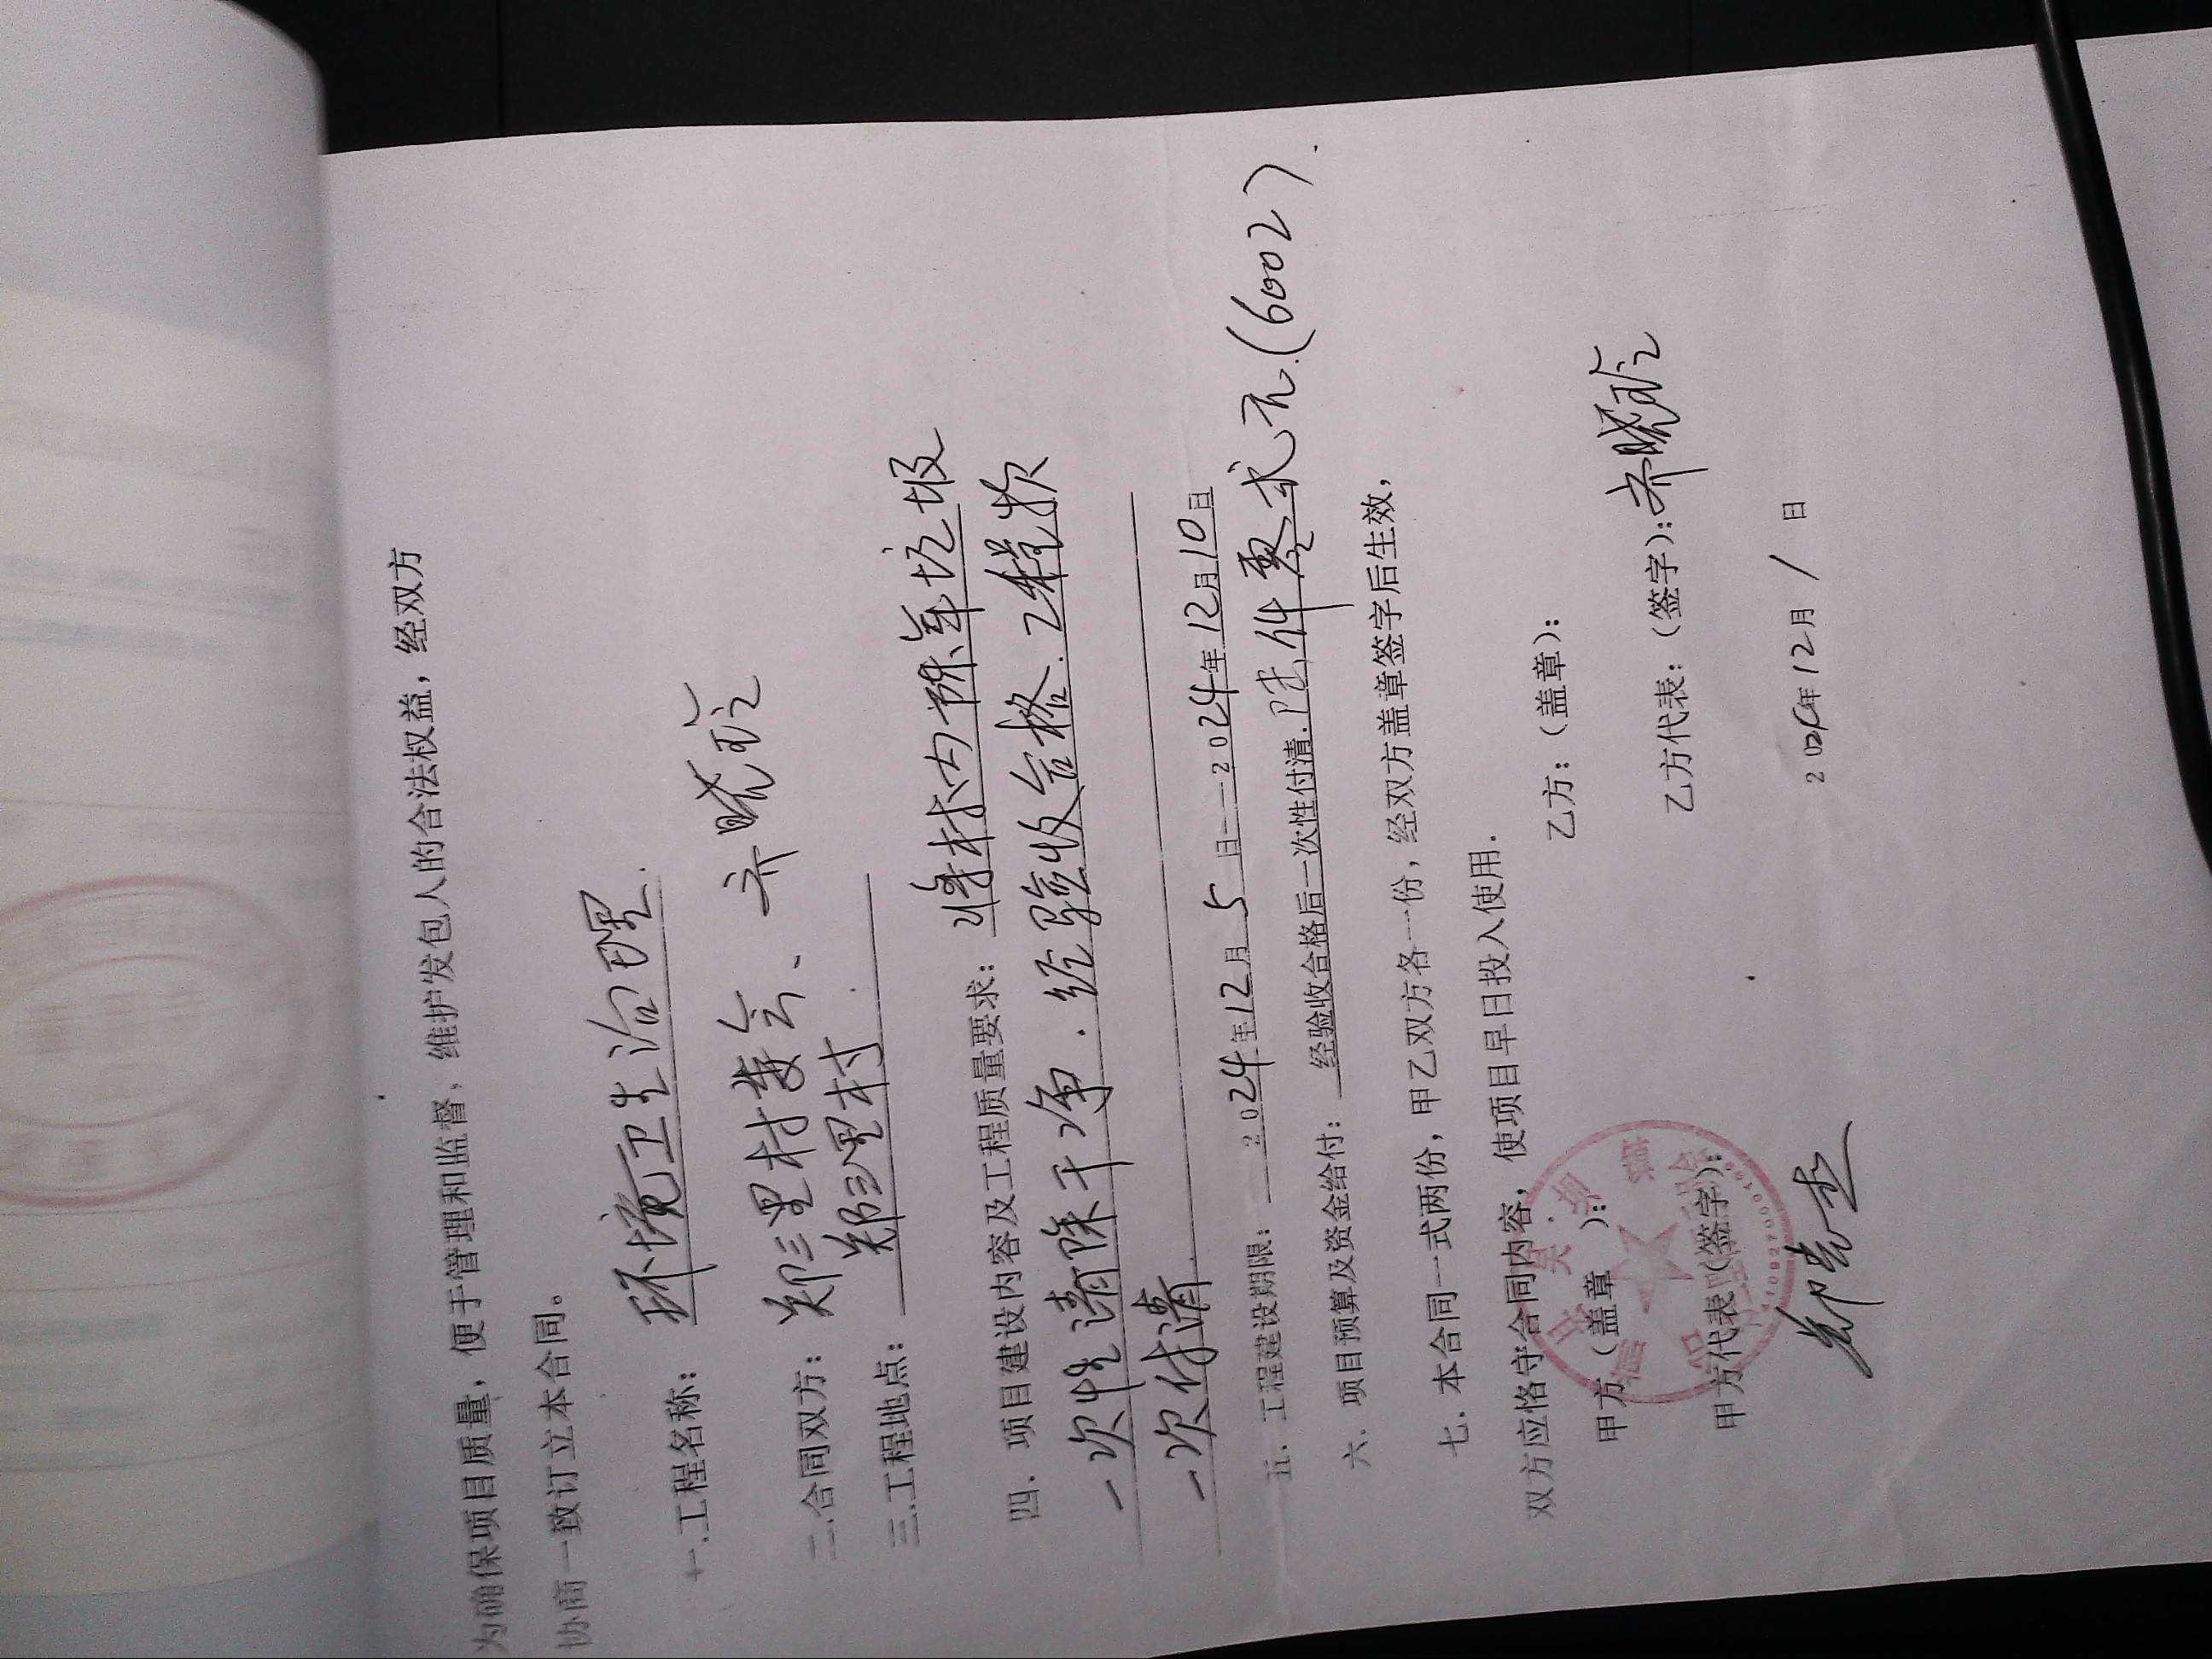 为确保项目质量，便于管理和监督，维护发包人的合法权益，经双方
协商一致订立本合同。
一.工程名称：环境卫生治理.
二.合同双方：郑三里村委会、齐晓
三.工程地点：郑三里村
四．项目建设内容及工程质量要求：将村内陈年垃圾
一次性清除干净．经验收合格.工程款
一次付清.
五．工程建设期限：2024年12月5日—2024年12月10日
六．项目预算及资金给付：经验收合格后一次性付清.陆仟零贰元.(6002).
七．本合同一式两份，甲乙双方各一份，经双方盖章签字后生效，
双方应恪守合同内容，使项目早日投入使用.
甲方（盖章）： 乙方：（盖章）：
甲方代表（签字）： 乙方代表：（签字）：齐晓
郑
202年12月1日